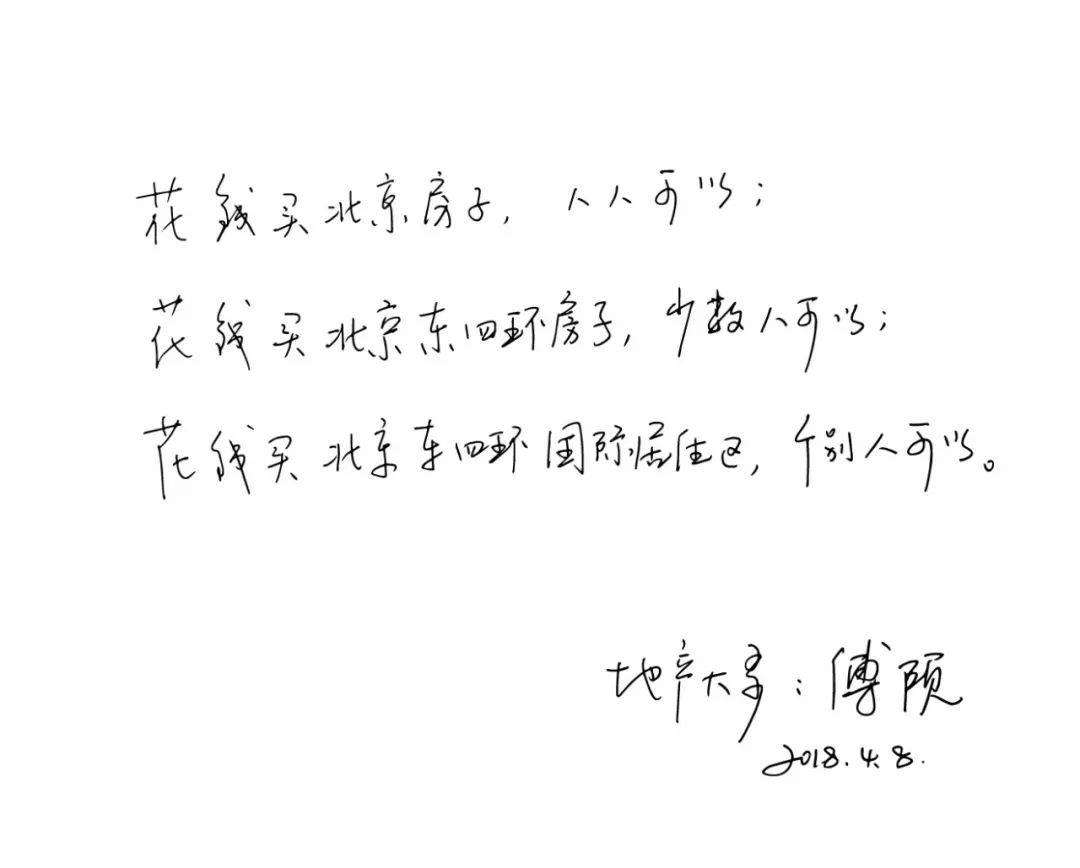 花钱买北京房子，人人可以；
花钱买北京东四环房子，少数人可以；
花钱买北京东四环国际居住区，个别人可以。
地产大季：傅硕
2018.4.8.